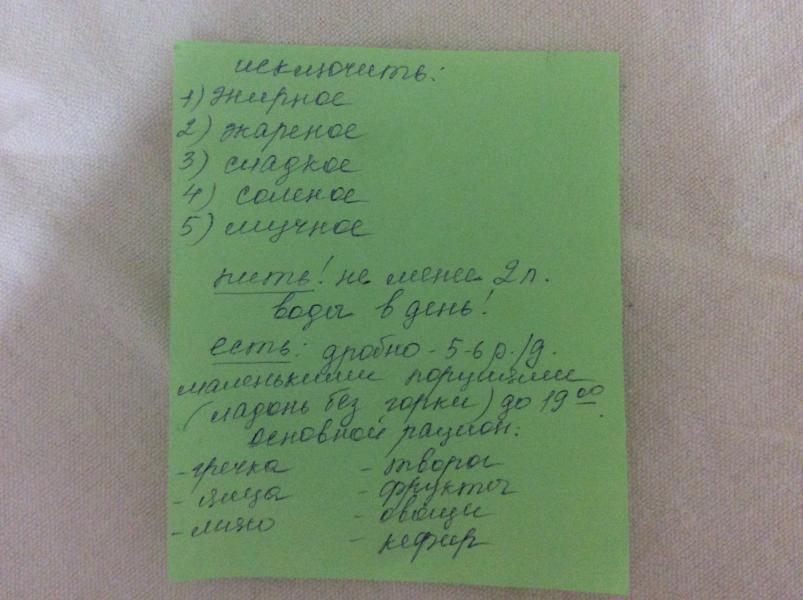 исключить:
1) жирное
2) жареное
3) сладкое
4) соленое
5) мучное
пить! не менее 2л.
воды в день!
есть: дробно - 5-6 р./д.
маленькими порциями
(ладонь без горки) до 19 00
основной рацион:
- гречка - творог
- яйца - фрукты
- мясо - овощи
- кефир